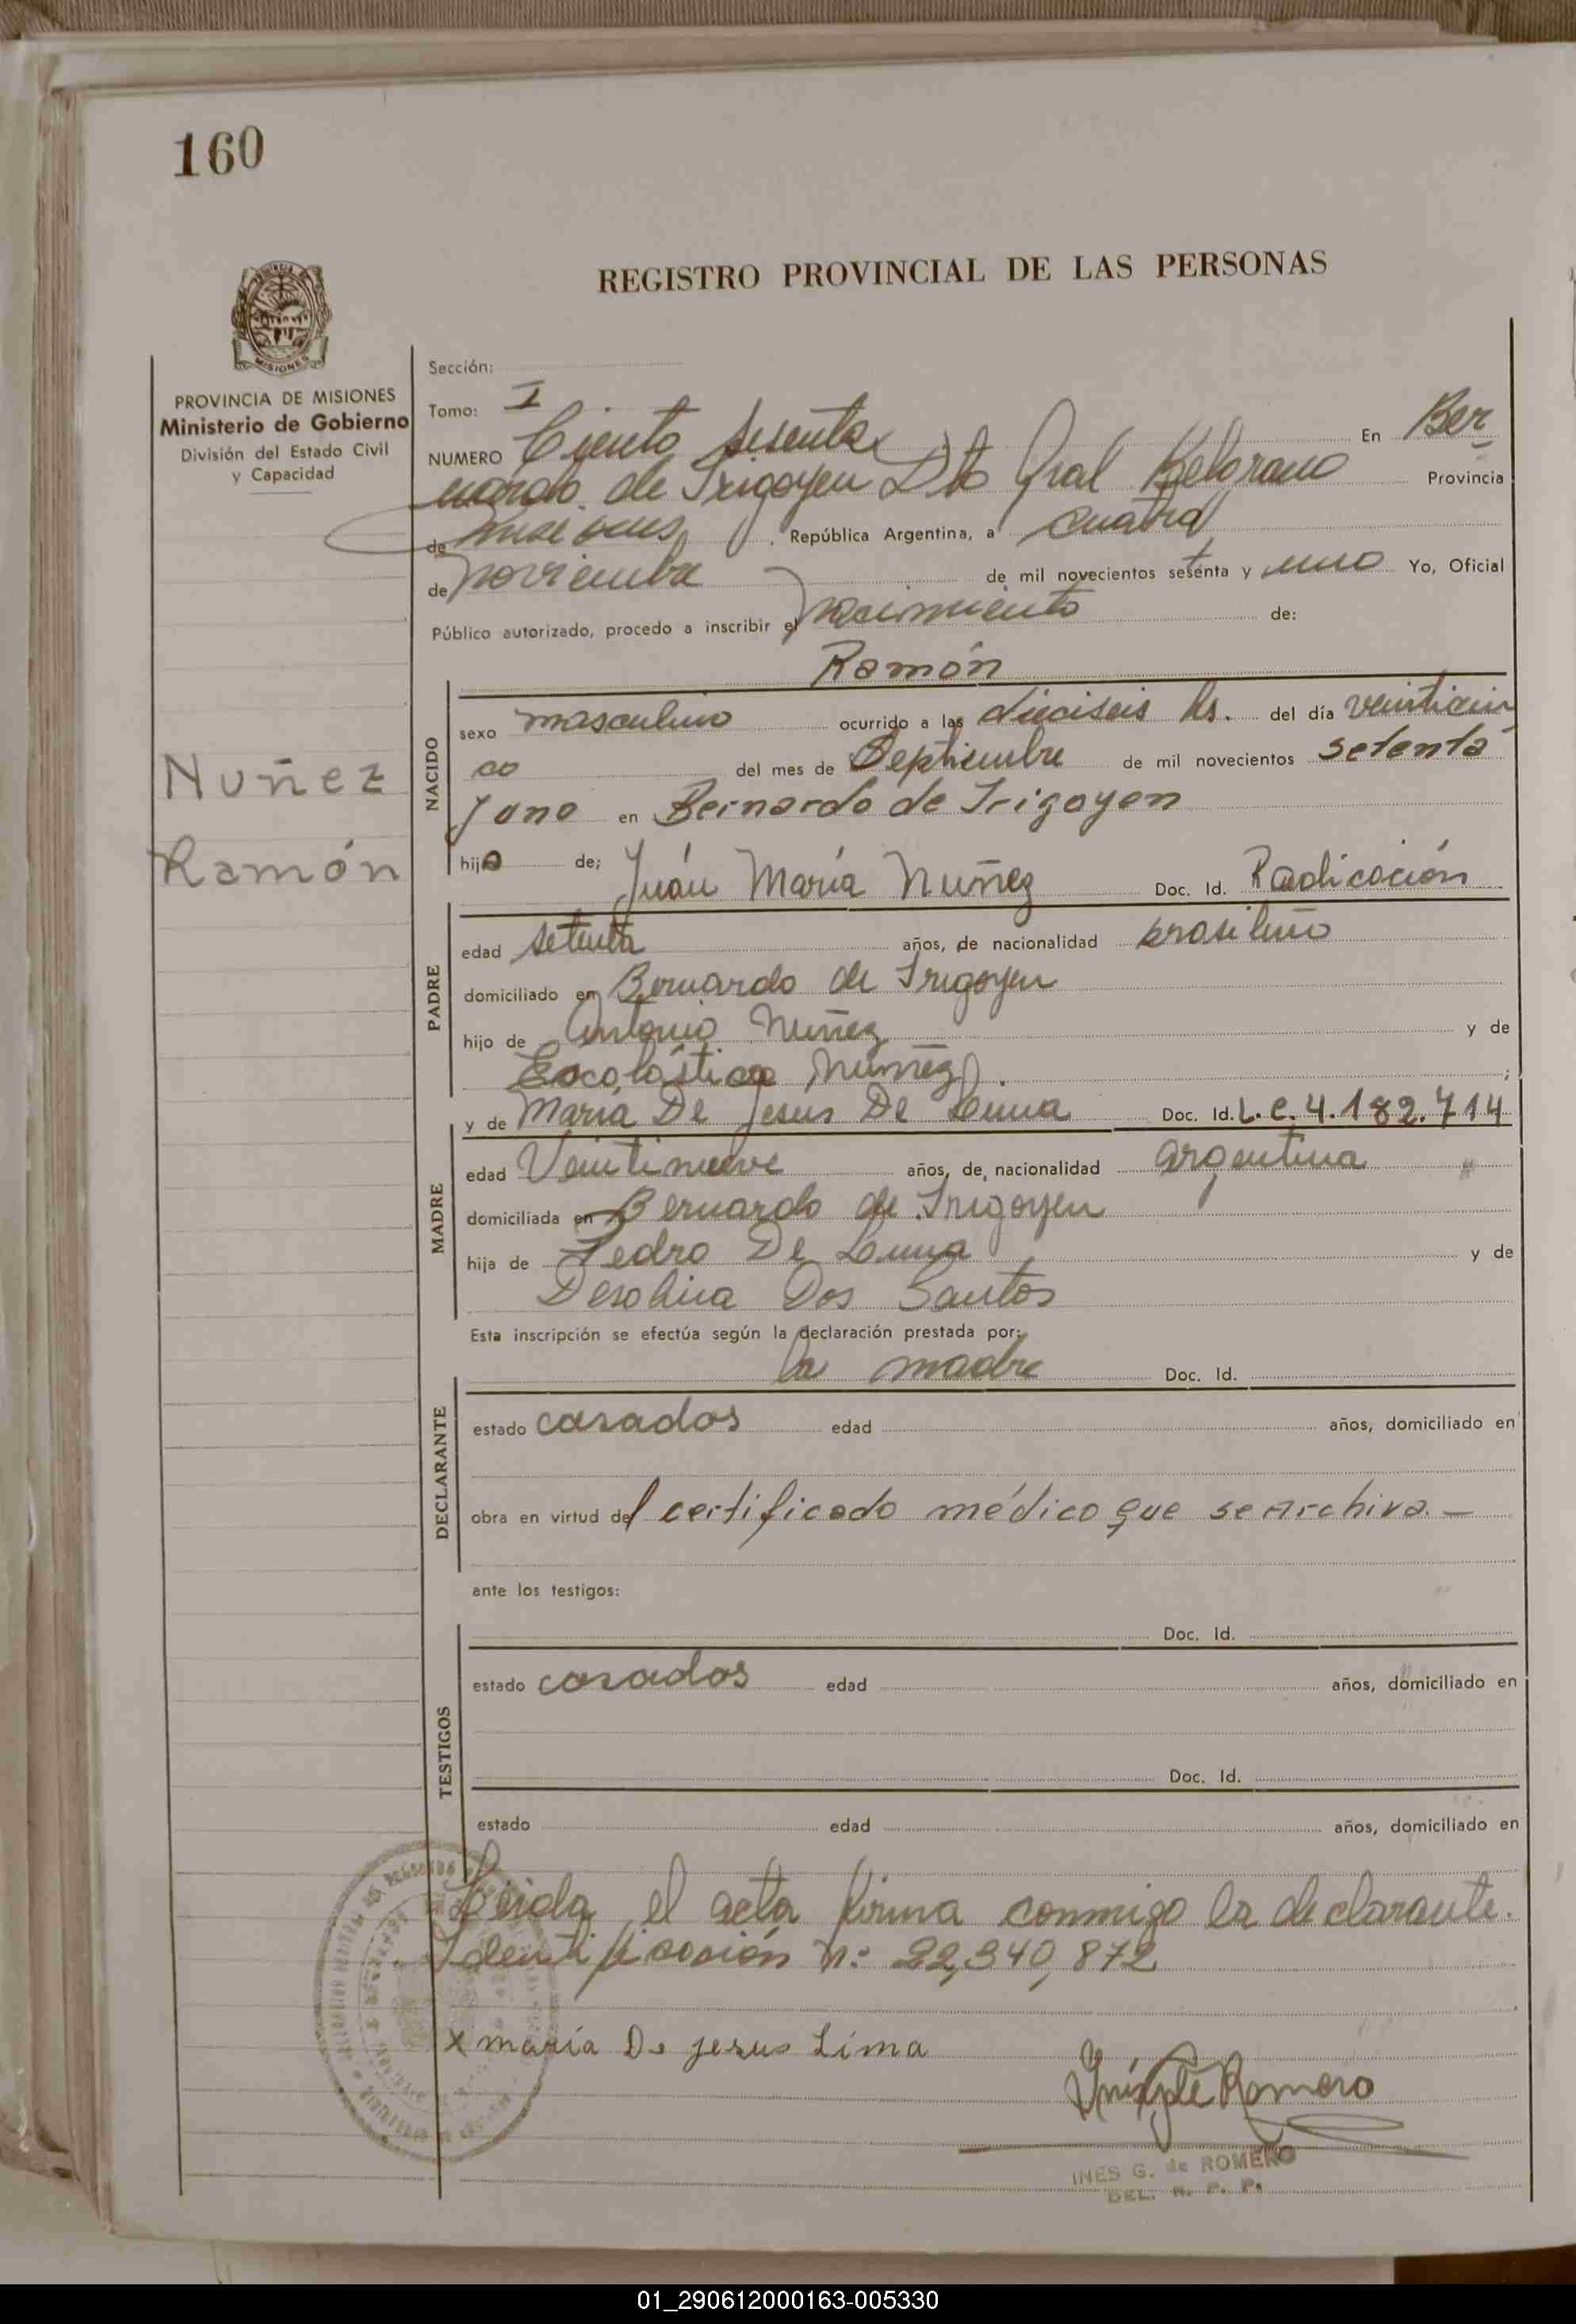 160
REGISTRO PROVINCIAL DE LAS PERSONAS
MISIONES
PROVINCIA DE MISIONES
Ministerio de Gobierno
División del Estado Civil
y Capacidad
Nuñez
Ramón
Sección:
Tomo: I
NUMERO Ciento sesenta En Ber
nardo de Irigoyen Dto Gral Belgrano Provincia
de Misiones, República Argentina, a cuatro
de noviembre de mil novecientos setenta y uno Yo, Oficial
Público autorizado, procedo a inscribir el nacimiento de:
Ramón
NACIDO
sexo masculino ocurrido a las dieciseis hs. del día veinticin
co del mes de Septiembre de mil novecientos setenta
y uno en Bernardo de Irigoyen
hijo de; Juán María Nuñez Doc. Id. Radicación
PADRE
edad setenta años, de nacionalidad brasileño
domiciliado en Bernardo de Irigoyen
hijo de Antonio Nuñez y de
Escolástica Nuñez ;
y de María De Jesús De Lima Doc. Id. L.C. 4.182.714
MADRE
edad Veintinueve años, de nacionalidad argentina
domiciliada en Bernardo de Irigoyen
hija de Pedro De Lima y de
Desolina Dos Santos
Esta inscripción se efectúa según la declaración prestada por:
la madre Doc. Id.
DECLARANTE
estado casados edad años, domiciliado en
obra en virtud del certificado médico que se archiva.—
ante los testigos:
Doc. Id.
TESTIGOS
estado casados edad años, domiciliado en
Doc. Id.
estado edad años, domiciliado en
Leida el acta firma conmigo la declarante.
Identificación n: 22,340,872
x maría De jesus Lima
Romero
INES G. de ROMERO
DEL. R. P. P.
01_290612000163-005330